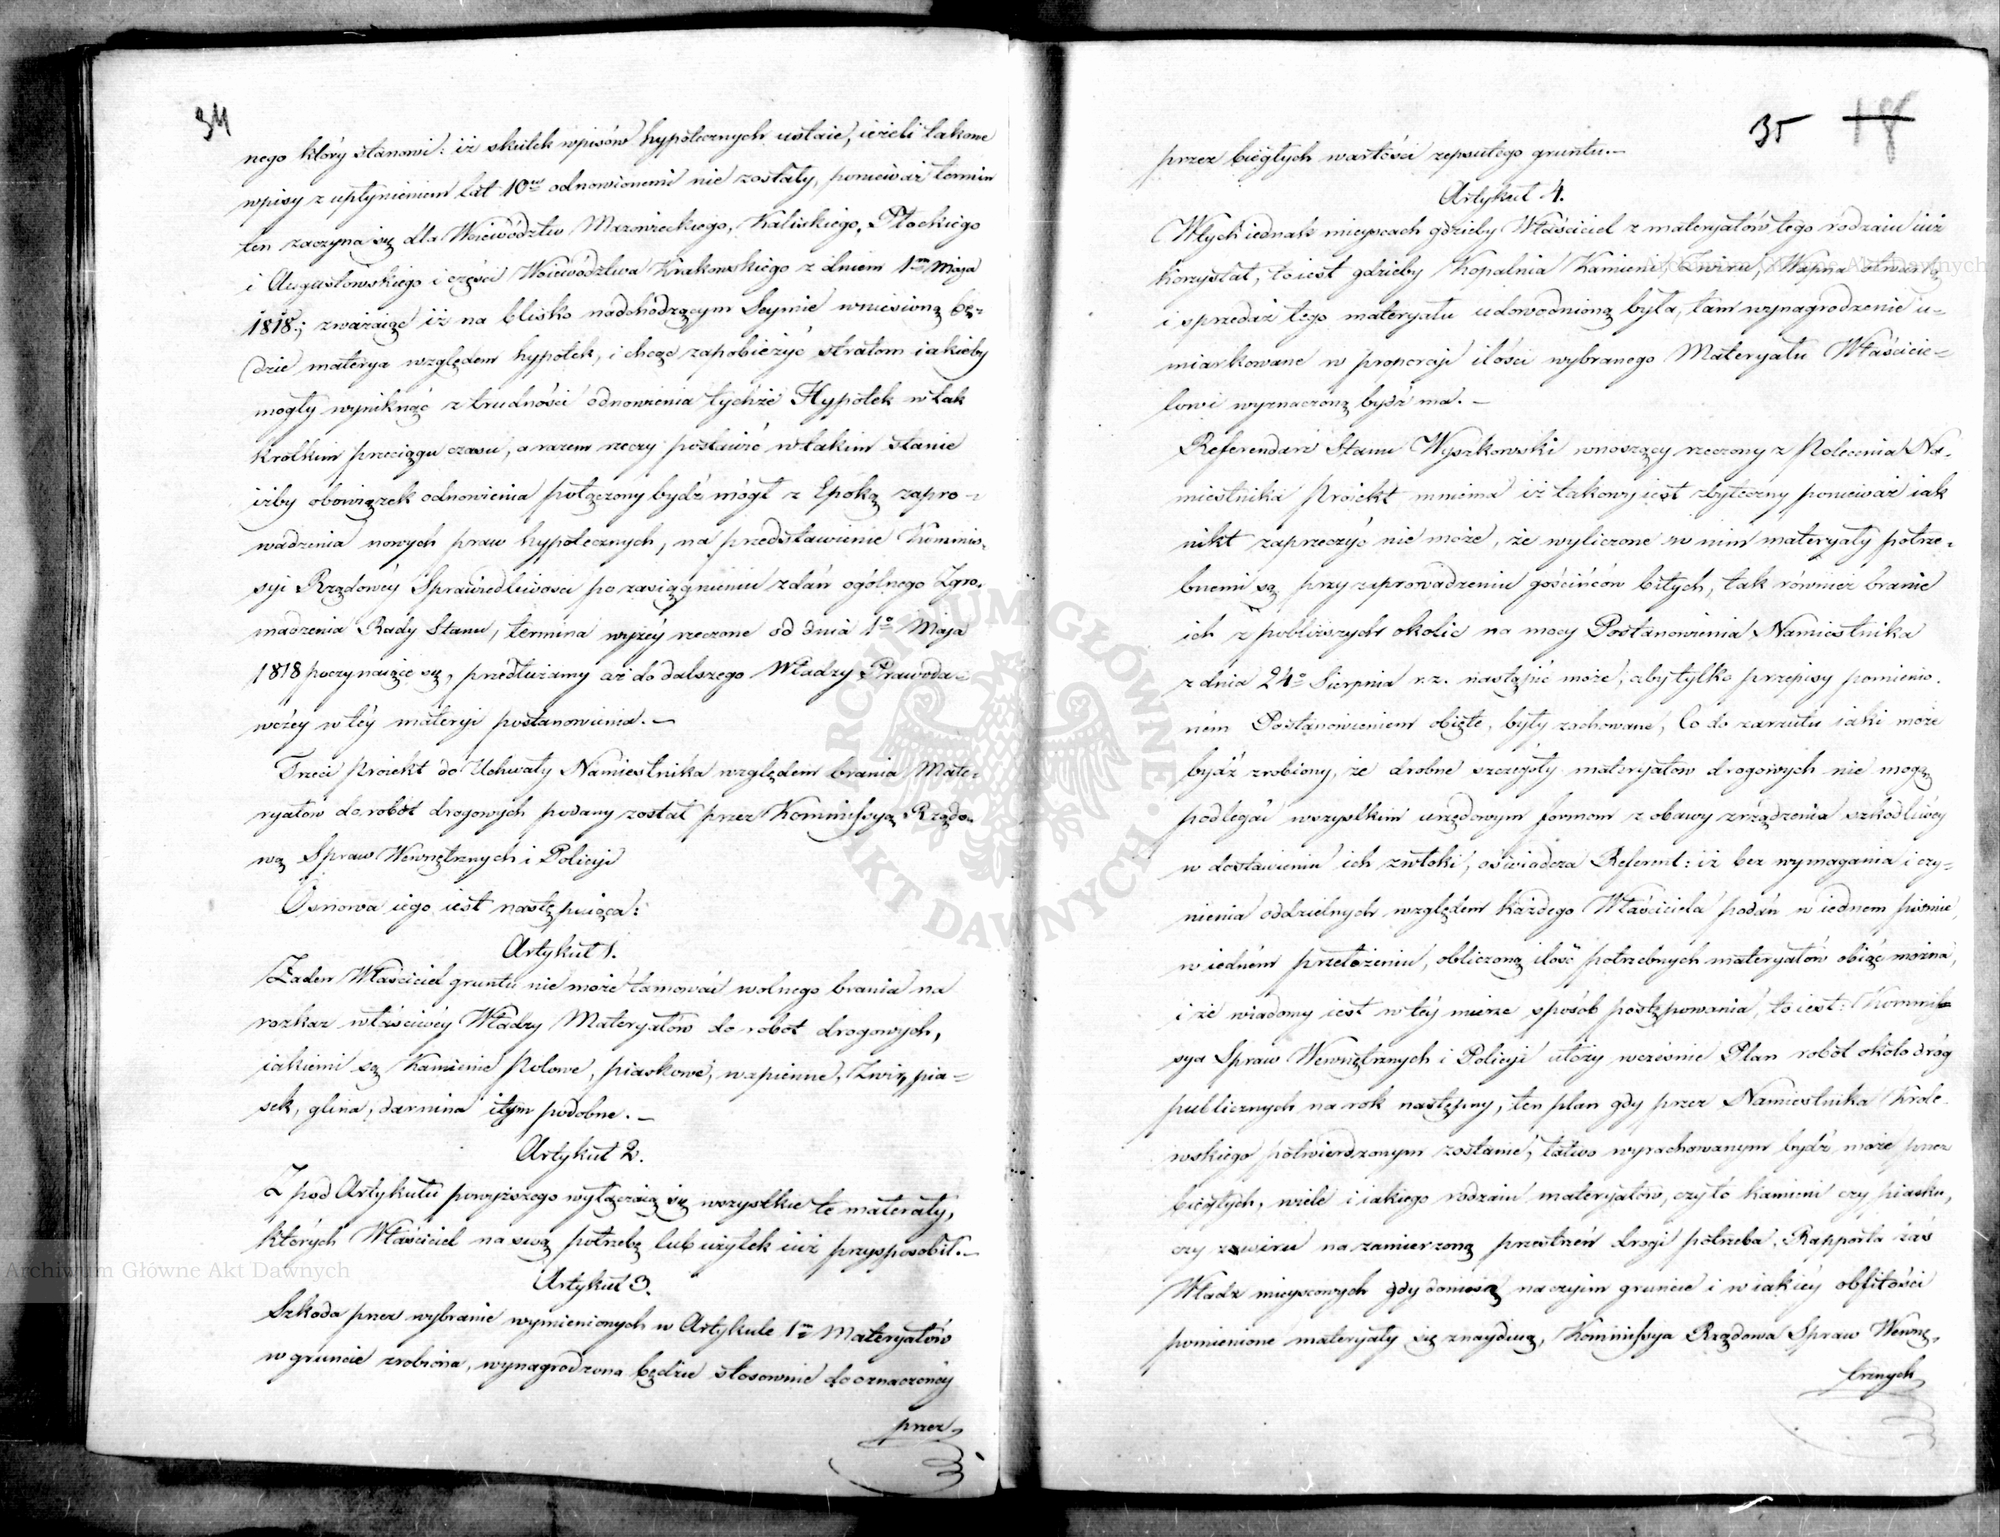 34
nego który stanowi: iż skutek wpisów hypotecznych ustaie, ieżeli takowe
wpisy z upłynieniem lat 10ciu odnowionemi nie zostały, ponieważ termin
ten zaczyna się dla Woiewództw Mazowieckiego, Kaliskiego, Płockiego
i Augustowskiego i części Woiewództwa Krakowskiego z dniem 1m Maja
1818; zważaiąc iż na blisko nadchodzącym Seymie wniesioną bę-
dzie materya względem hypotek, i chcąc zapobieżyć stratom iakieby
mogły wyniknąć z trudności odnowienia tychże Hypotek w tak
krótkim przeciągu czasu, a razem rzeczy postawić w takim stanie
iżby obowiązek odnowienia połączony bydź mógł z Epoką zapro-
wadzenia nowych praw hypotecznych, na przedstawienie Kommis-
syi Rządowéy Sprawiedliwości po zasiągnieniu zdań ogólnego Zgro-
madzenia Rady Stanu, termina wyżéy rzeczone od dnia 1o Maja
1818 poczynaiące się, przedłużamy aż do dalszego Władzy Prawoda-
wczéy w téy materyi postanowienia. —
Trzeci Proiekt do Uchwały Namiestnika względem brania Mate-
ryałów do robót drogowych podany został przez Kommissyą Rządo-
wą Spraw Wewnętrznych i Policyi
Osnowa iego iest następuiąca:
Artykuł 1.
Żaden Właściciel gruntu nie może tamować wolnego brania na
rozkaz właściwéy Władzy Materyałów do robót drogowych,
iakiemi są Kamienie Polowe, piaskowe, wapienne, Żwir, pia-
sek, glina, darnina i tym podobne. —
Artykuł 2.
Z pod Artykułu powyższego wyłączaią się wszystkie te materały,
których Właściciel na swą potrzebę lub użytek iuż przysposobił. —
Artykuł 3.
Szkoda przez wybranie wymienionych w Artykule 1m Materyałów
w gruncie zrobiona, wynagrodzona będzie stosownie do oznaczonéy
przez
35 18
przez biegłych wartości zepsutego gruntu. —
Artykuł 4.
W tych iednak mieyscach gdzieby Właściciel z materyałów tego rodzaiu iuż
korzystał, to iest gdzieby Kopalnia Kamieni Żwiru, Wapna otwartą
i sprzedaż tego materyału udowodnioną była, tam wynagrodzenie u-
miarkowane w proporcyi ilości wybranego Materyału Właścicie-
lowi wyznaczoną bydź ma. —
Referendarz Stanu Wyszkowski wnoszący rzeczony z Polecenia Na-
miestnika Proiekt mniema iż takowy iest zbyteczny ponieważ iak
nikt zaprzeczyć nie może, że wyliczone w nim materyały potrze-
bnemi są przy zaprowadzeniu gościńców bitych, tak również branie
ich z pobliższych okolic na mocy Postanowienia Namiestnika
z dnia 24o Sierpnia r.z. nastąpić może, aby tylko przepisy pomienio-
ném Postanowieniem obięte, były zachowane, Co do zarzutu iaki może
bydź zrobiony, że drobne szczegóły materyałów drogowych nie mogą
podlegać wszystkim urzędowym formom z obawy zrządzenia szkodliwéy
w dostawieniu ich zwłoki, oświadcza Referent: iż bez wymagania i czy-
nienia oddzielnych względem każdego Właściciela podań w iednem piśmie,
w iedném przełożeniu, obliczoną ilość potrzebnych materyałów obiąć można,
i że wiadomy iest w téy mierze sposób postępowania, to iest: Kommis-
sya Spraw Wewnętrznych i Policyi ułoży wcześnie Plan robót około dróg
publicznych na rok następny; ten plan gdy przez Namiestnika Króle-
wskiego potwierdzonym zostanie, łatwo wyrachowanym bydź może przez
biegłych, wiele i iakiego rodzaiu materyałów, czy to kamieni czy piasku,
czy żwiru na zamierzoną przestrzeń drogi potrzeba. Rapporta zaś
Władz mieyscowych gdy doniosą na czyim gruncie i w iakiéy obfitości
pomienione materyały się znayduią, Kommissya Rządowa Spraw Wewnę-
trznych
Archiwum Główne Akt Dawnych
Archiwum Główne Akt Dawnych
ARCHIWUM GŁÓWNE AKT DAWNYCH